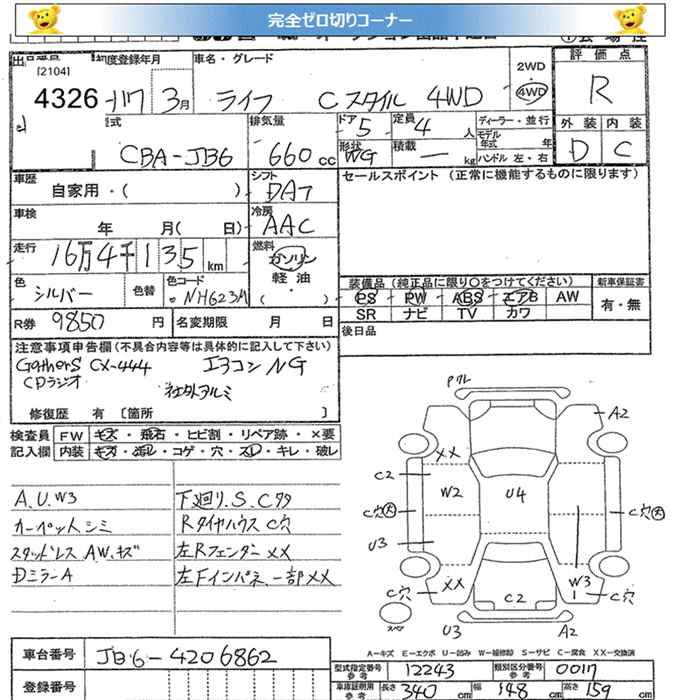 完全ゼロ切りコーナー
[2104] 初度登録年月 車名・グレード 2WD 評価点
4326 H17 3月 ライフ Cスタイル 4WD 4WD R
型式 排気量 ドア 5 定員 4人 ディーラー・並行 外装 内装
CBA-JB6 660cc 形状 WG 積載 ― kg モデル年式 年 ハンドル 左・右 D C
車歴 自家用・( ) シフト DAT セールスポイント (正常に機能するものに限ります)
車検 年 月( 日) 冷房 AAC
走行 16万4千135km 燃料 ガソリン 軽・油 ( )
色 シルバー 色替 色コード NH623M
装備品 (純正品に限り○をつけてください) 新車保証書
PS PW ABS エアB AW 有・無
SR ナビ TV カワ
R券 9850円 名変期限 月 日 後日品
注意事項申告欄 (不具合内容等は具体的に記入して下さい)
Gathers CX-444 エアコン NG
CDラジオ 社外アルミ
修復歴 有 〔箇所 〕
検査員 FW キズ・飛石・ヒビ割・リペア跡・×要
記入欄 内装 キズ・汚れ・コゲ・穴・スレ・キレ・破レ
A.U.W3 下廻りS.Cアリ
カーペットシミ Rタイヤハウス C穴
スタッドレス AWキズ 左Rフェンダー××
DミラーA 左Fインパネ、一部××
Pクレ
A2
××
C2 W2 U4
C穴大 C穴大
U3
×× W3
C穴 C2 C穴
スペア U3 A2
A-キズ E-エクボ U-凹み W-補修跡 S-サビ C-腐食 XX-交換済
車台番号 JB6-4206862
型式指定番号 参考 12243 類別区分番号 参考 0017
登録番号 車庫証明用 参考 長さ 340cm 幅 148cm 高さ 159cm